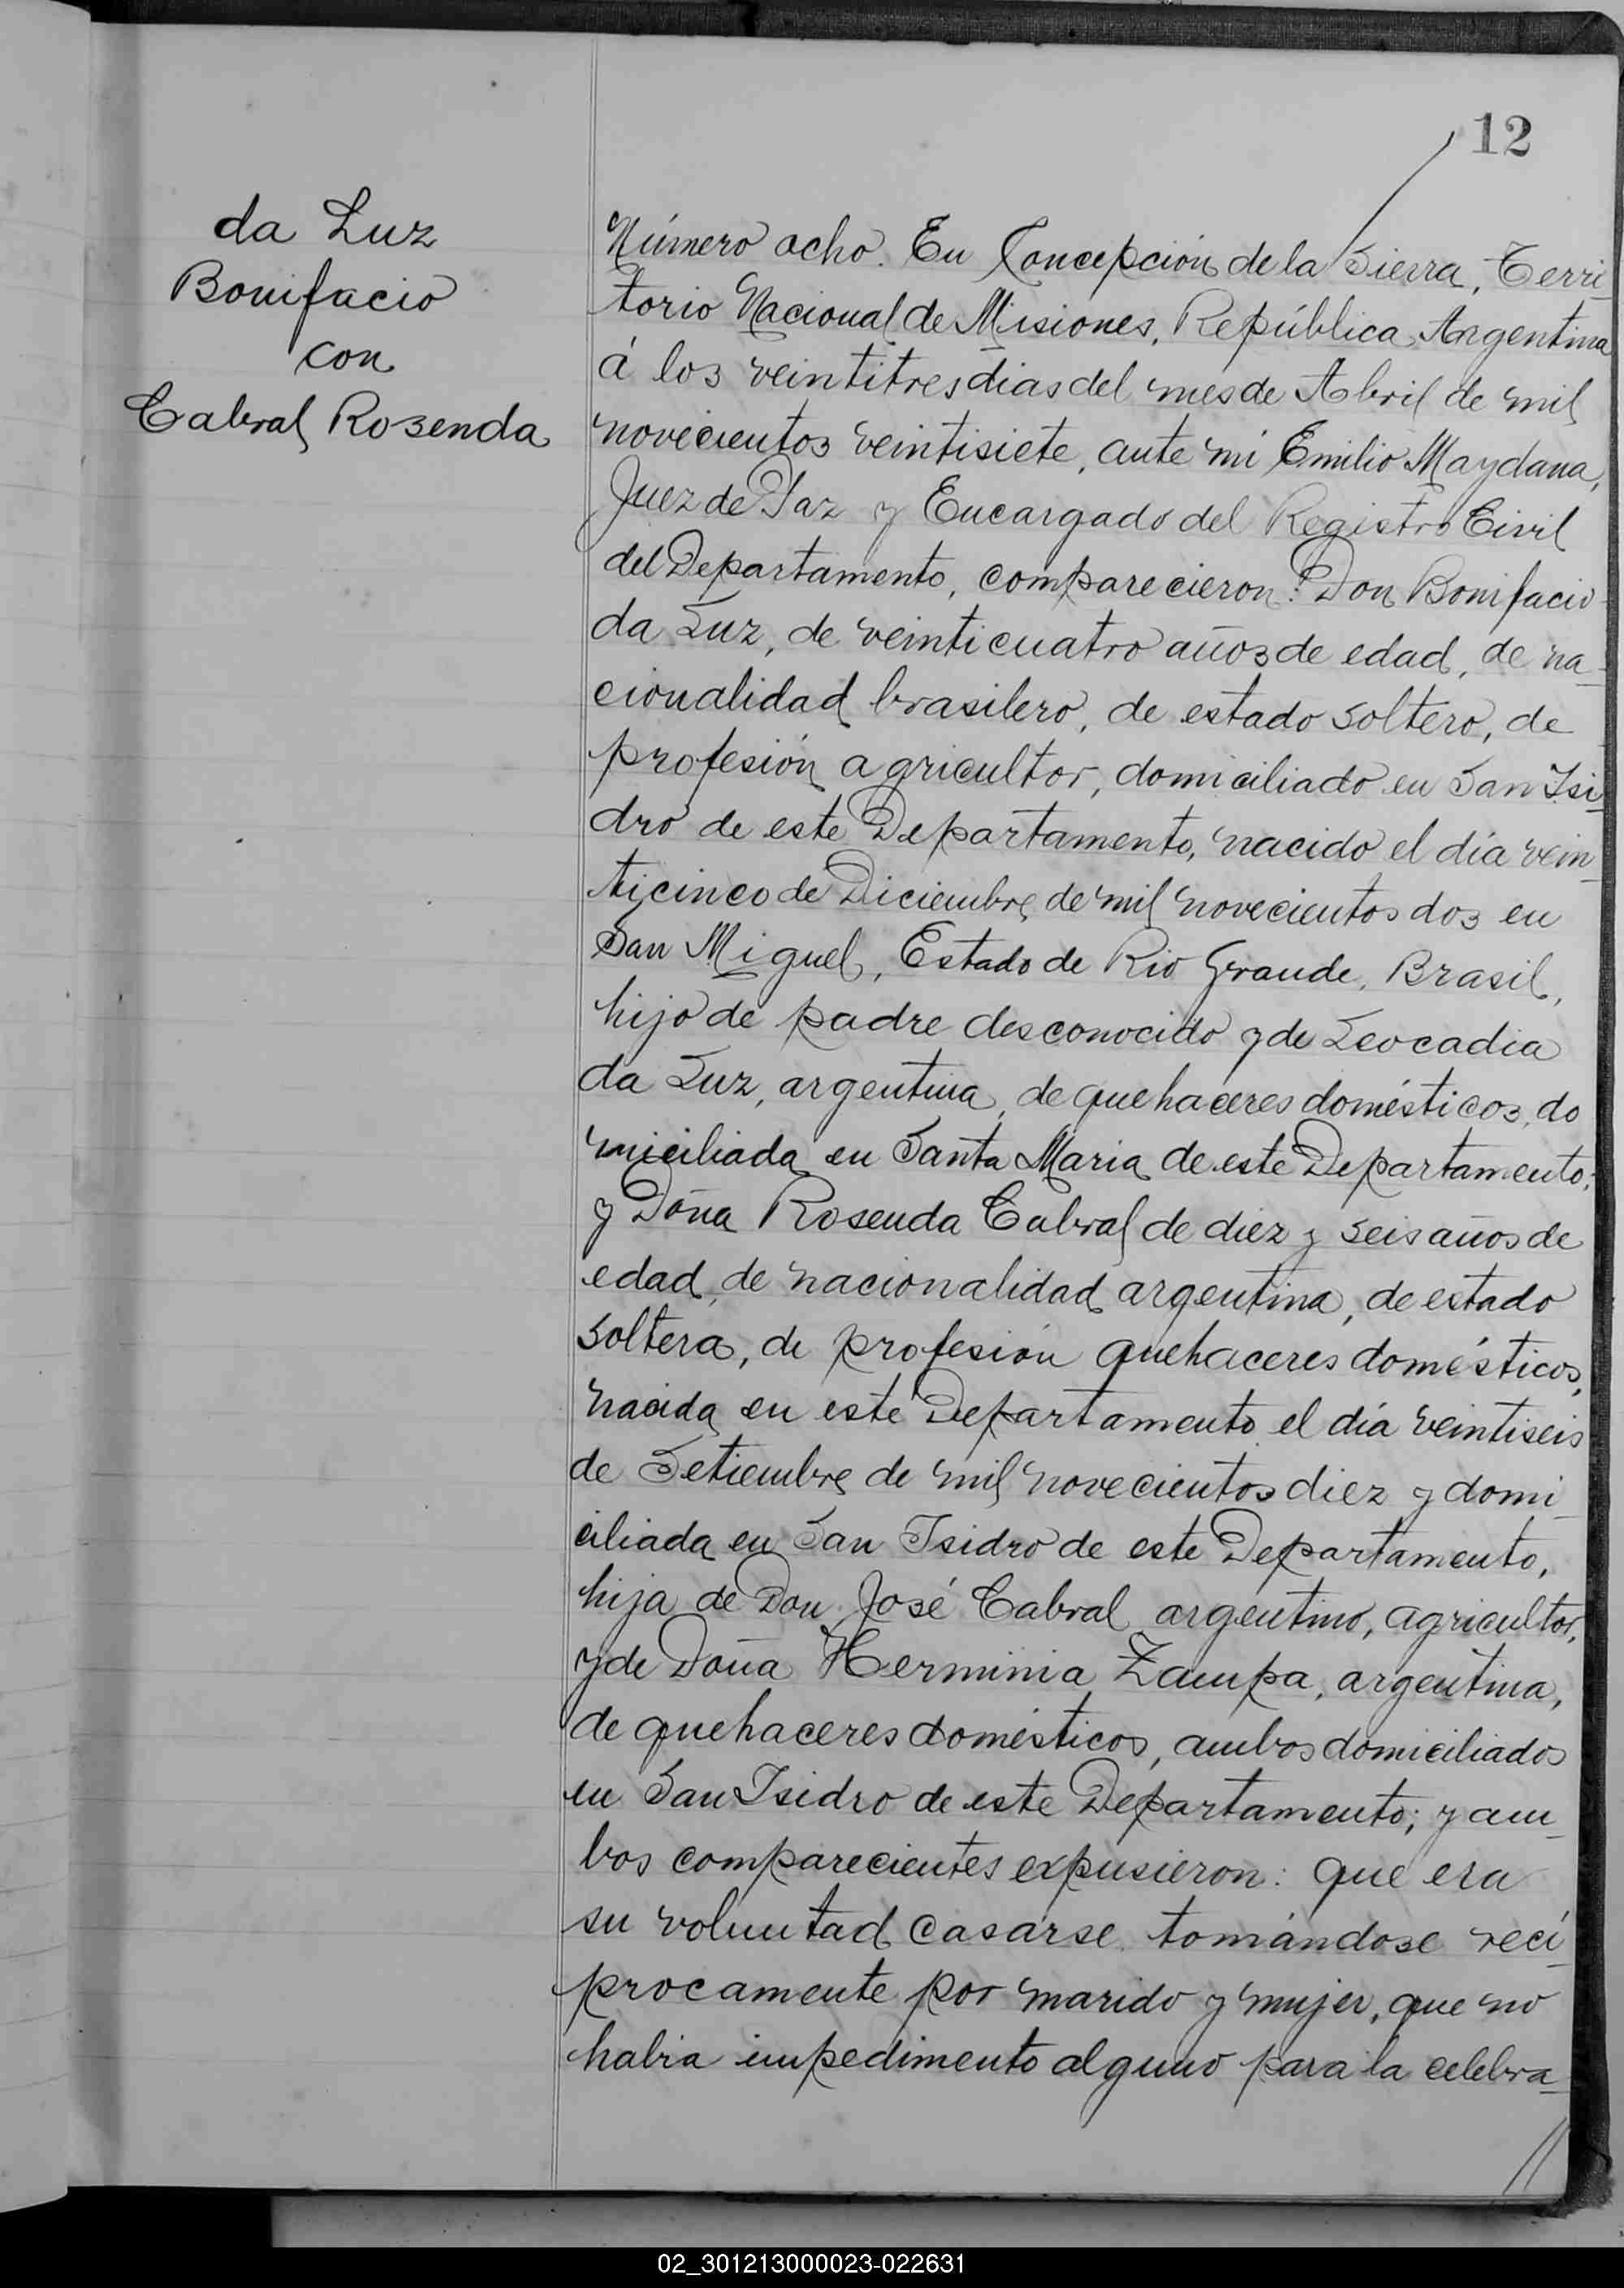 12
da Luz
Bonifacio
con
Cabral Rosenda
Número ocho. En Concepción de la Sierra, Terri-
torio Nacional de Misiones, República Argentina
á los veintitres dias del mes de Abril de mil
novecientos veintisiete, ante mi Emilio Maydana,
Juez de Paz y Encargado del Registro Civil
del Departamento, comparecieron: Don Bonifacio
da Luz, de veinticuatro años de edad, de na-
cionalidad brasilero, de estado soltero, de
profesión agricultor, domiciliado en San Isi-
dro de este Departamento, nacido el día vein-
ticinco de Diciembre de mil novecientos dos en
San Miguel, Estado de Rio Grande, Brasil,
hijo de padre desconocido y de Leocadia
da Luz, argentina, de quehaceres domésticos, do
miciliada en Santa Maria de este Departamento;
y Doña Rosenda Cabral de diez y seis años de
edad, de nacionalidad argentina, de estado
soltera, de profesión quehaceres domésticos,
nacida en este Departamento el día veintiseis
de Setiembre de mil novecientos diez y domi-
ciliada en San Isidro de este Departamento,
hija de Don José Cabral argentino, agricultor,
y de Doña Herminia Zampa, argentina,
de quehaceres domésticos, ambos domiciliados
en San Isidro de este Departamento; y am-
bos comparecientes expusieron: que era
su voluntad casarse tomándose recí-
procamente por marido y mujer, que no
habia impedimento alguno para la celebra-
02_301213000023-022631